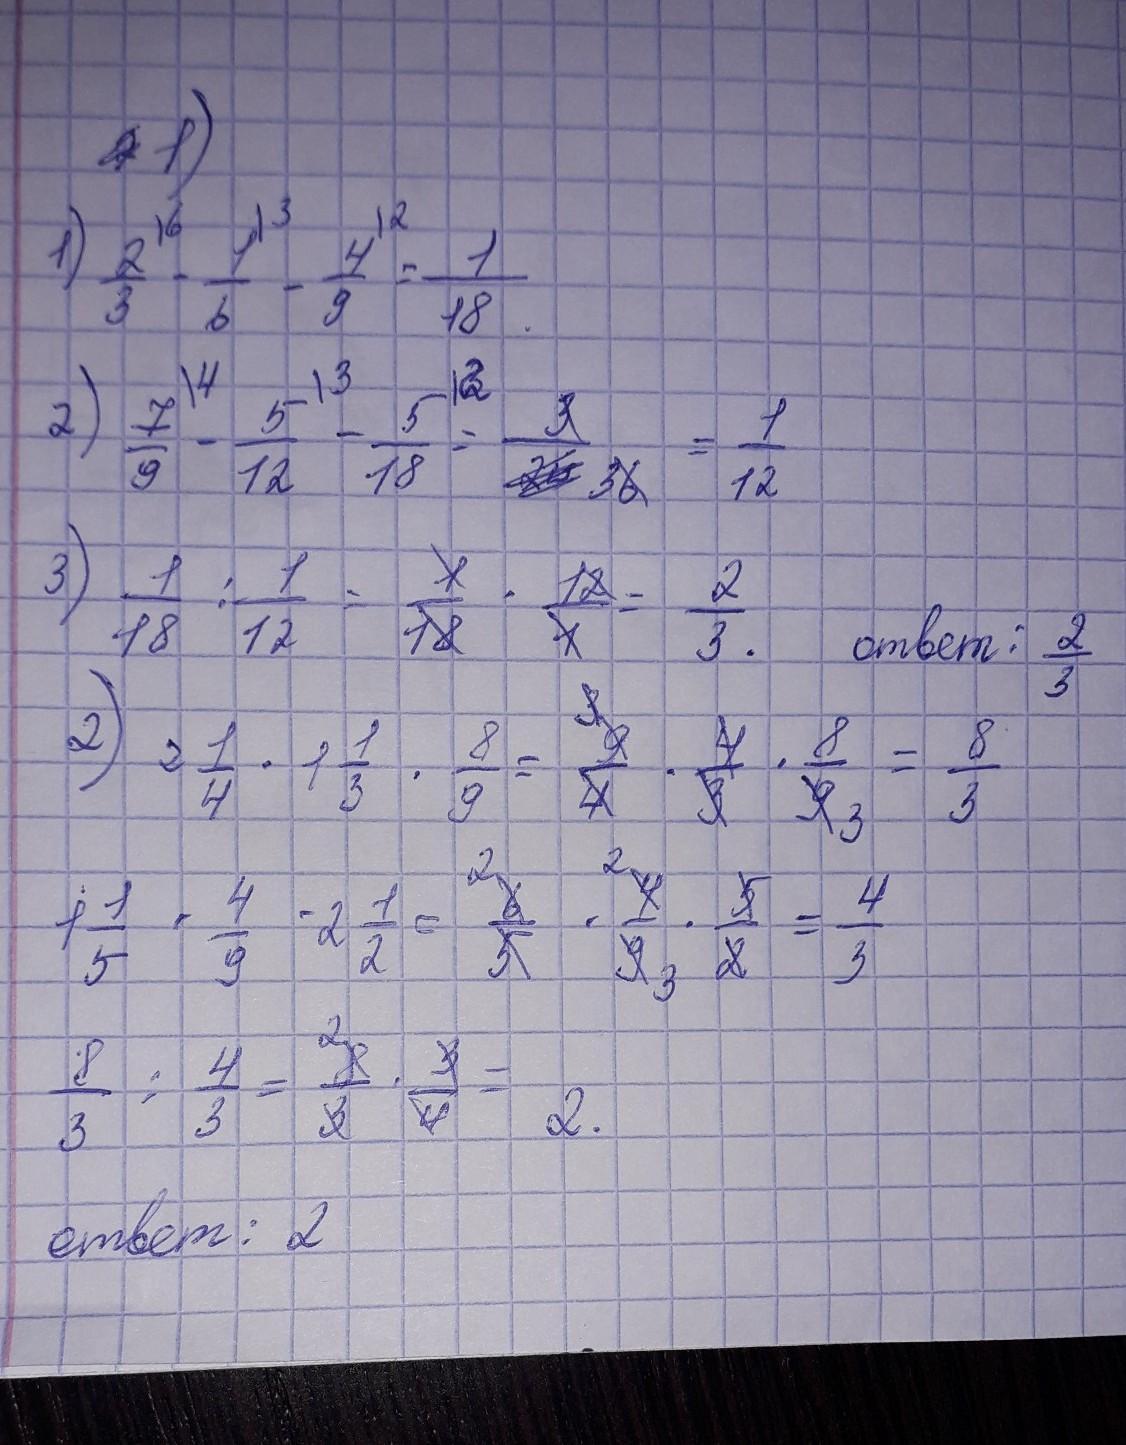 1)
1) 2/3 \6 - 1/6 \3 - 4/9 \2 = 1/18.
2) 7/9 \4 - 5/12 \3 - 5/18 \2 = 3/36 = 1/12
3) 1/18 : 1/12 = 1/18 · 12/1 = 2/3. ответ: 2/3
2) 2 1/4 · 1 1/3 · 8/9 = 9/4 · 4/3 · 8/9 3 = 8/3
1 1/5 · 4/9 · 2 1/2 = 2 6/5 · 2 4/9 3 · 5/2 = 4/3
8/3 : 4/3 = 2 8/3 · 3/4 = 2.
ответ: 2